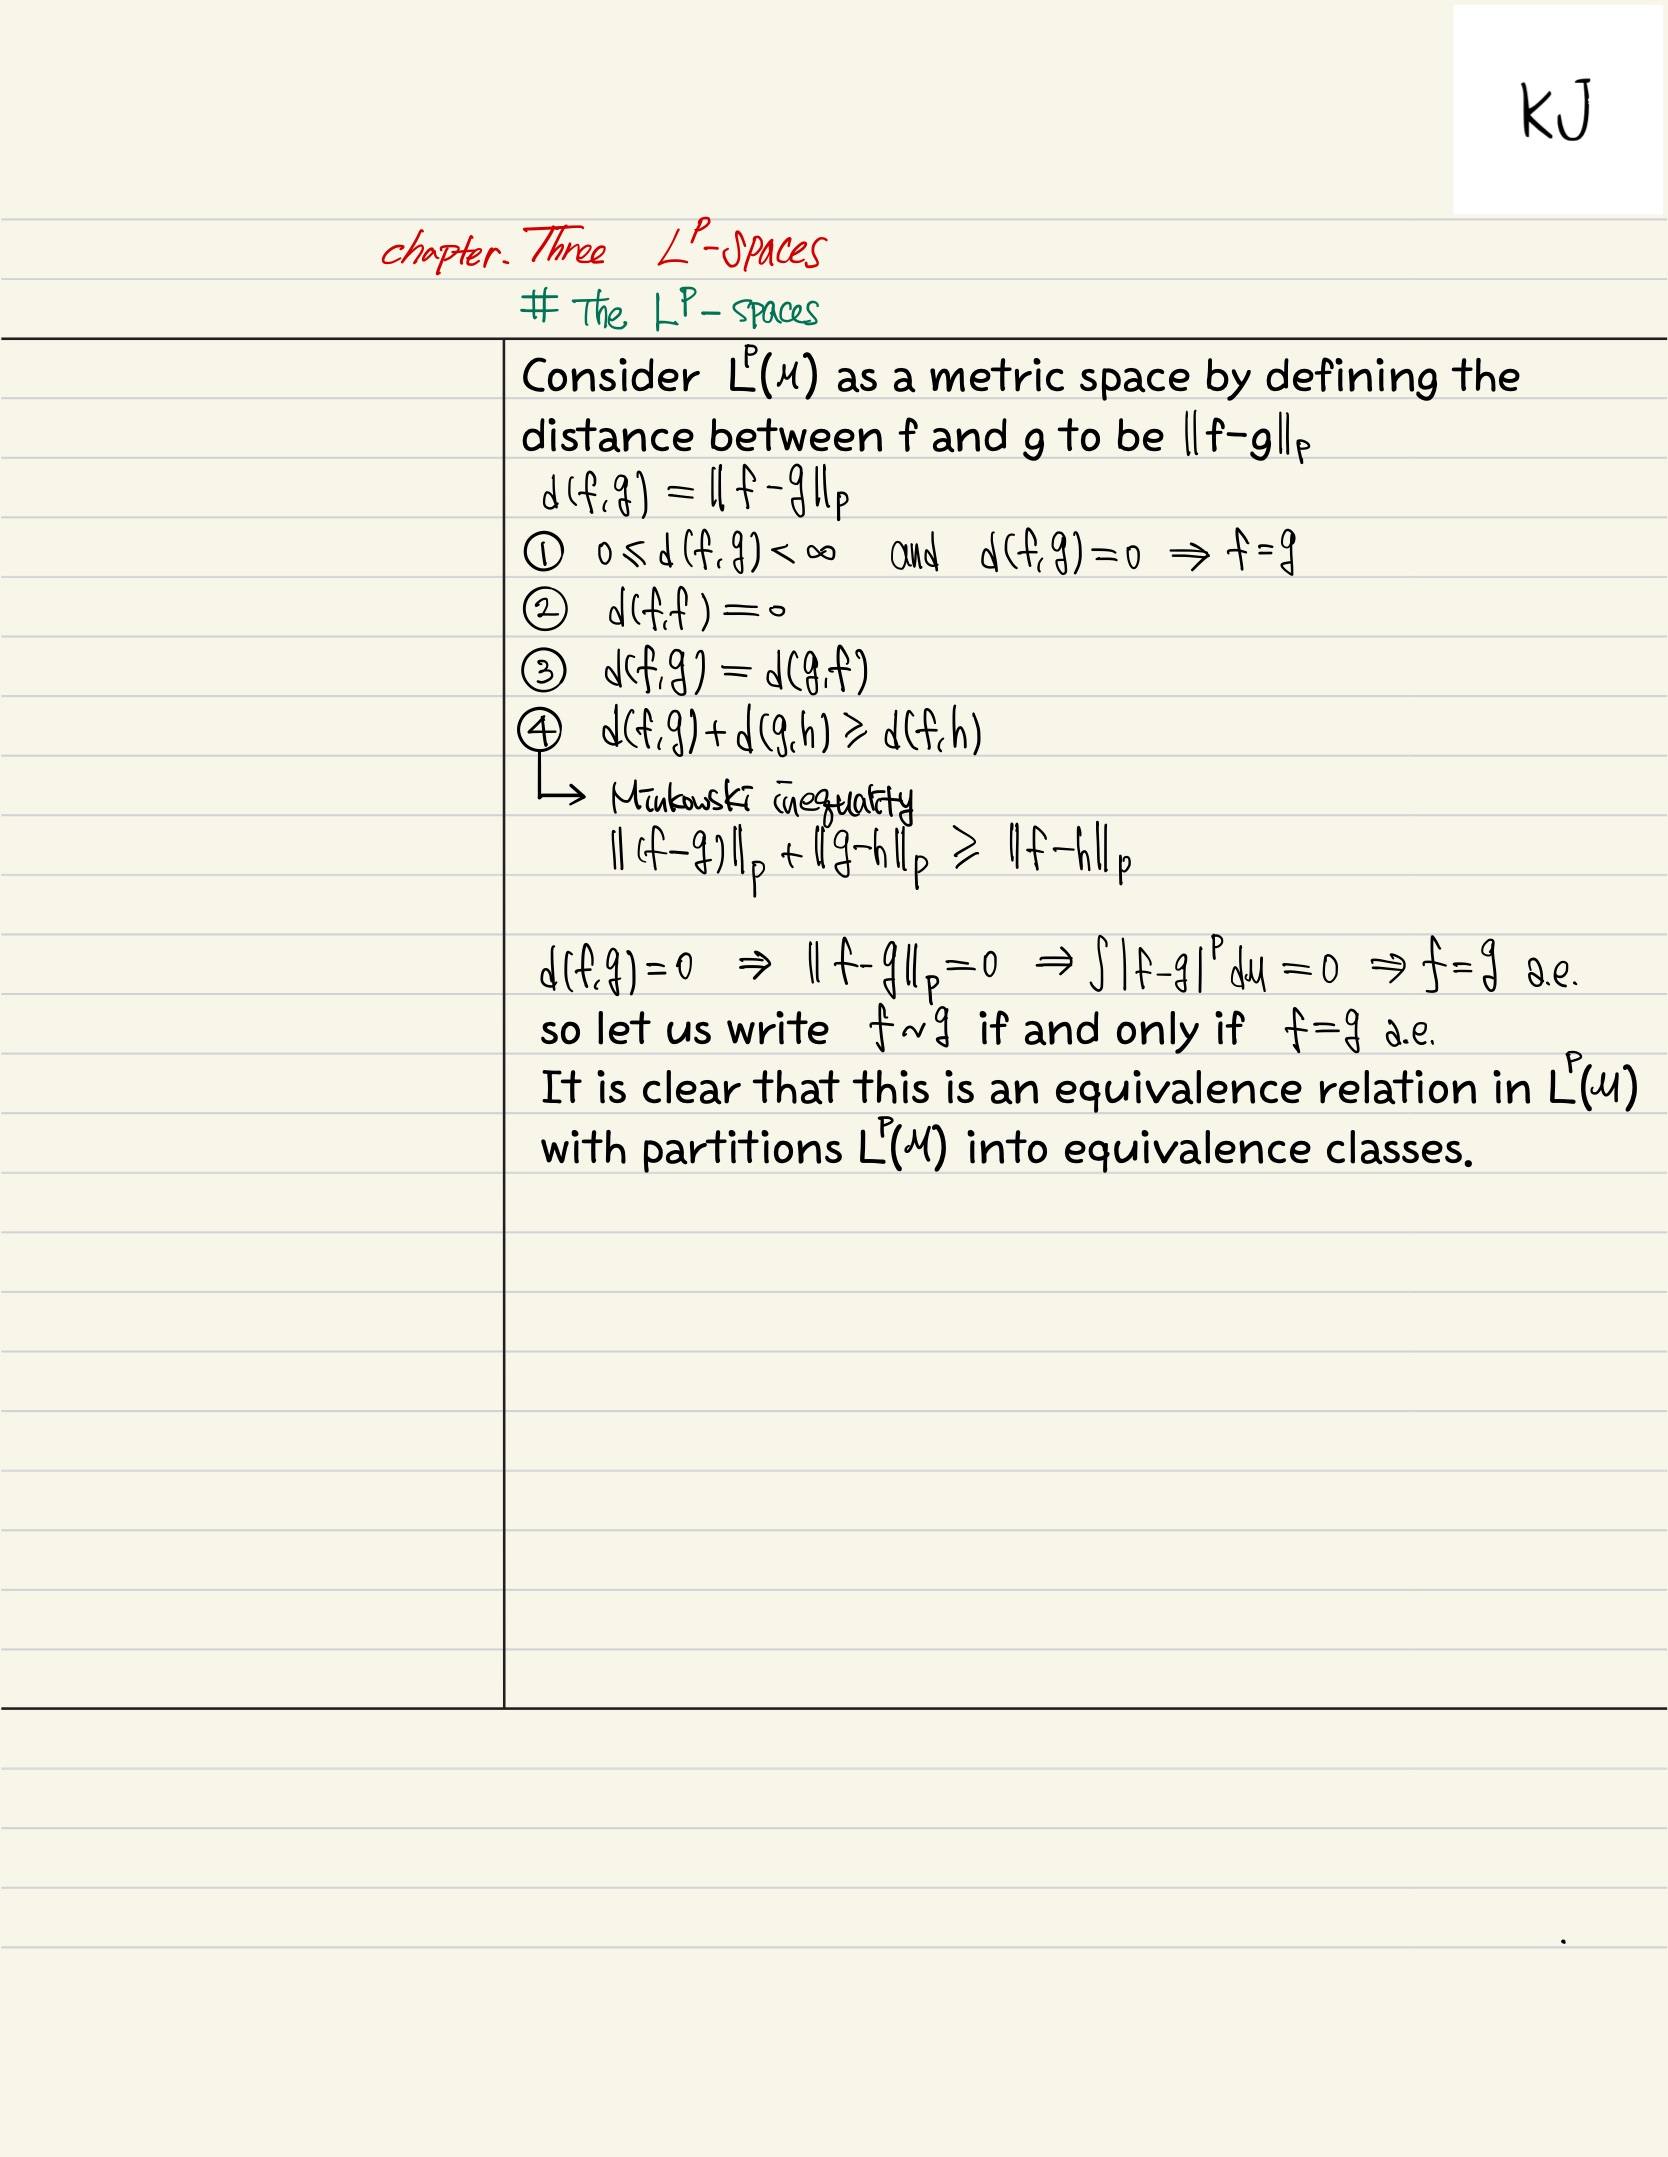 KJ
chapter. Three L^p-spaces
# The L^p-spaces
Consider L^p(μ) as a metric space by defining the
distance between f and g to be ||f-g||_p
d(f,g) = ||f-g||_p
① 0 ≤ d(f,g) < ∞ and d(f,g) = 0 ⇒ f=g
② d(f,f) = 0
③ d(f,g) = d(g,f)
④ d(f,g) + d(g,h) ≥ d(f,h)
↳ Minkowski inequality
||(f-g)||_p + ||g-h||_p ≥ ||f-h||_p
d(f,g) = 0 ⇒ ||f-g||_p = 0 ⇒ ∫|f-g|^p dμ = 0 ⇒ f=g a.e.
so let us write f~g if and only if f=g a.e.
It is clear that this is an equivalence relation in L^p(μ)
with partitions L^p(μ) into equivalence classes.